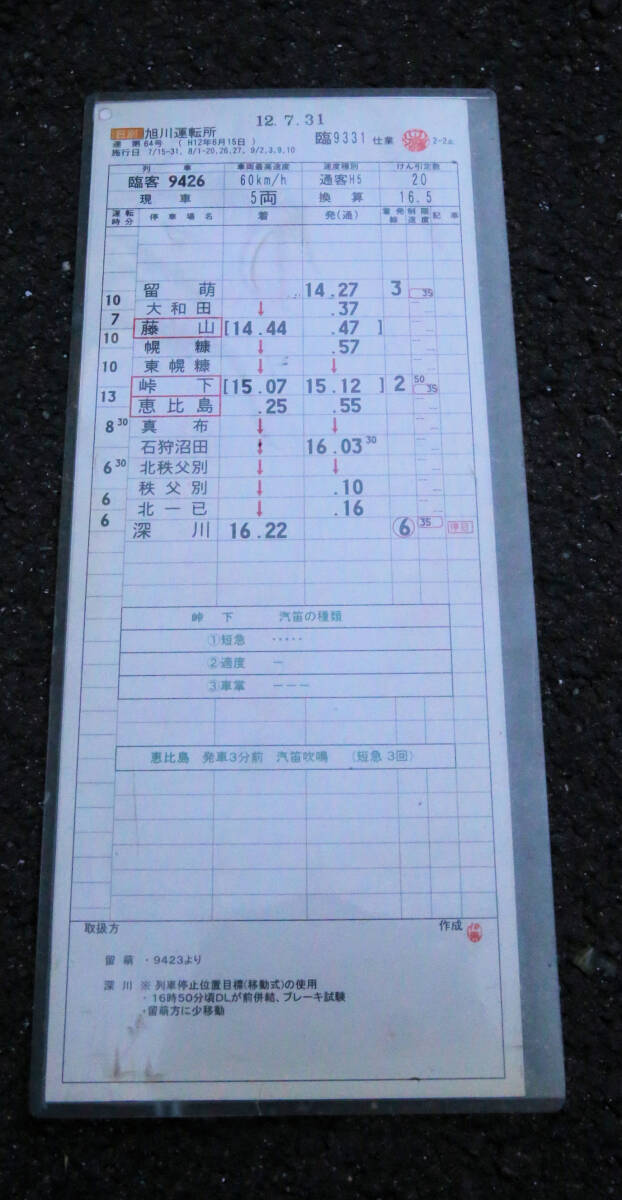 12.7.31
旭川運転所
運 第64号 ( H12年6月15日 )
臨9331 仕業
施行日 7/15-31, 8/1-20,26,27, 9/2,3,9,10
列車 車両最高速度 速度種別 けん引定数
臨客 9426 60km/h 通客H5 20
現車 5両 換算 16.5
運転時分 停車場名 着 発(通) 着発線 制限速度 記事
留萌 14.27 3 35
10
大和田 ↓ .37
7
藤山 [14.44 .47 ]
10
幌糠 ↓ .57
10 東幌糠 ↓ ↓
峠下 [15.07 15.12 ] 2 50 35
13
恵比島 .25 .55
8 30 真布 ↓ ↓
石狩沼田 16.03 30
6 30 北秩父別 ↓ ↓
秩父別 ↓ .10
6
北一已 ↓ .16
6
深川 16.22 ⑥ 35
峠下 汽笛の種類
①短急 ・・・・・
②適度 ー
③車掌 ーーー
恵比島 発車3分前 汽笛吹鳴 (短急 3回)
取扱方 作成
留萌 ・9423より
深川 ※ 列車停止位置目標(移動式)の使用
・16時50分頃DLが前併結、ブレーキ試験
・留萌方に少移動